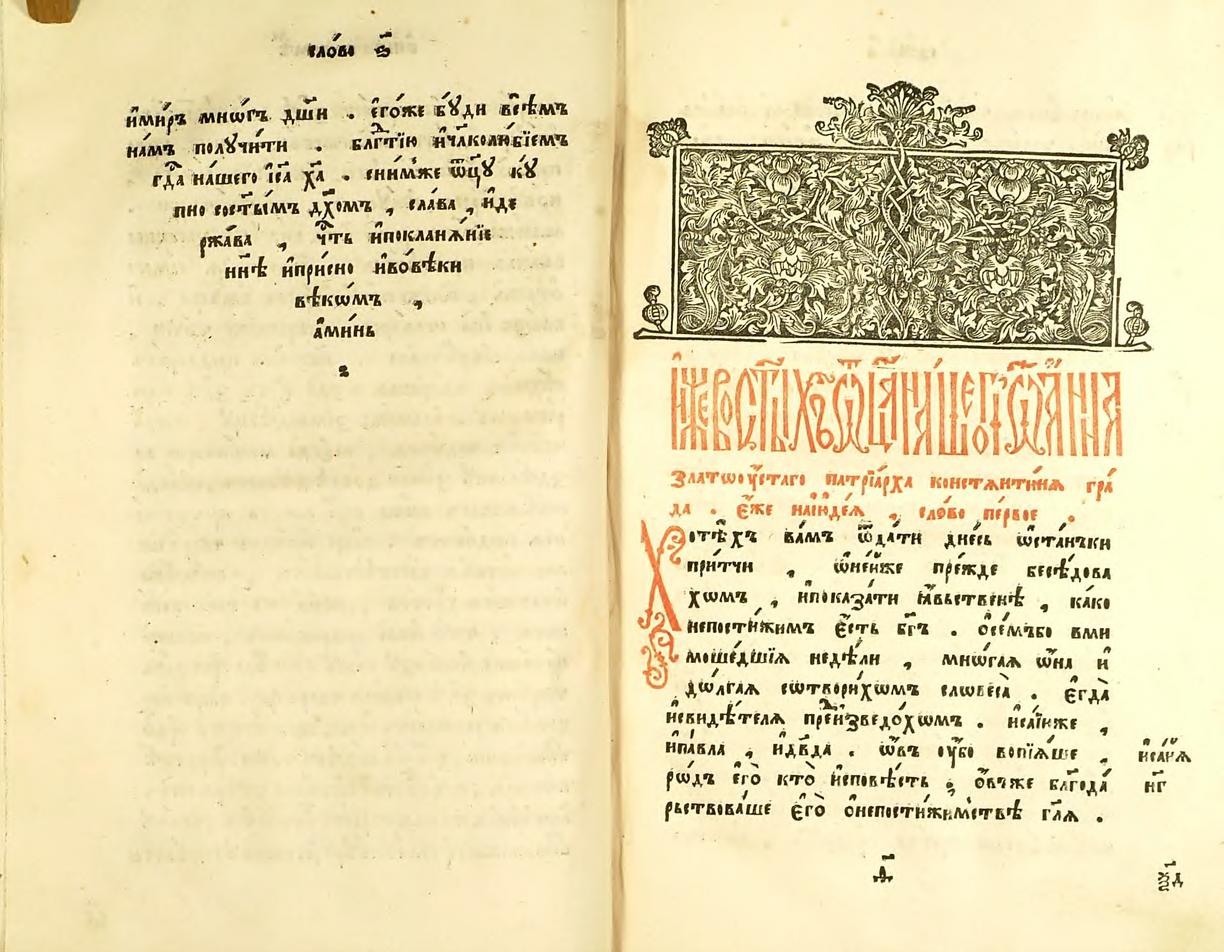 сло́во ѕ҃
и҆ми́ръ мнѡ́гъ дш҃и . є҆го́же бꙋ́ди всѣ́мъ
на́мъ полꙋчи́ти . блгⷣтїю и҆чл҃колю́бїемъ
гдⷭ҇а на́шего і҆са ха҃ . сни́мже ѻ҆ц҃ꙋ кꙋ
пно сост҃ы́мъ дх҃омъ , сла́ва , и҆де
ржа́ва , чⷭ҇ть и҆поклана́нїе .
нн҃ѣ и҆при́сно и҆вовѣ́ки
вѣкѡ́мъ ,
а҆ми́нь
и҆́же во ст҃ы́хъ ѿц҃а на́шегѡ і҆ѡа́нна
златоꙋ́стаго патрїа́рха констѧнти́нѧ гра́
да . є҆́же наі҆ꙋде́ѧ , сло́во пе́рвое .
Хотѣ́хъ ва́мъ ѿда́ти дне́сь ѡ҆ста́нъки
при́тчи , ѡ҆не́йже пре́жде бесѣ́дова
хѡмъ , и҆показа́ти ꙗ҆́вьственнѣ , ка́ко
непости́жимъ є҆́сть бг҃ъ . ѻ҆се́мъбо вми
моше́дшїѧ недѣ́ли , мнѡ́гаѧ ѡ҆на и҆
дѡ́лгаѧ сѡтвори́хѡмъ словеса̀ . є҆гда̀
и҆свидѣ́телѧ преи҆зведо́хѡмъ . и҆са́їюже ,
и҆па́вла , и҆дв҃да . ѡ҆въ ᲂу҆́бо вопїѧ́ше ,
рѡ́дъ є҆гѡ̀ кто̀ и҆сповѣ́сть ; ѻ҆́въже благода́
рьствова́ше є҆го̀ ѻ҆непости́жимьствѣ гл҃ѧ .
и҆са́їѧ
нг҃
д҃